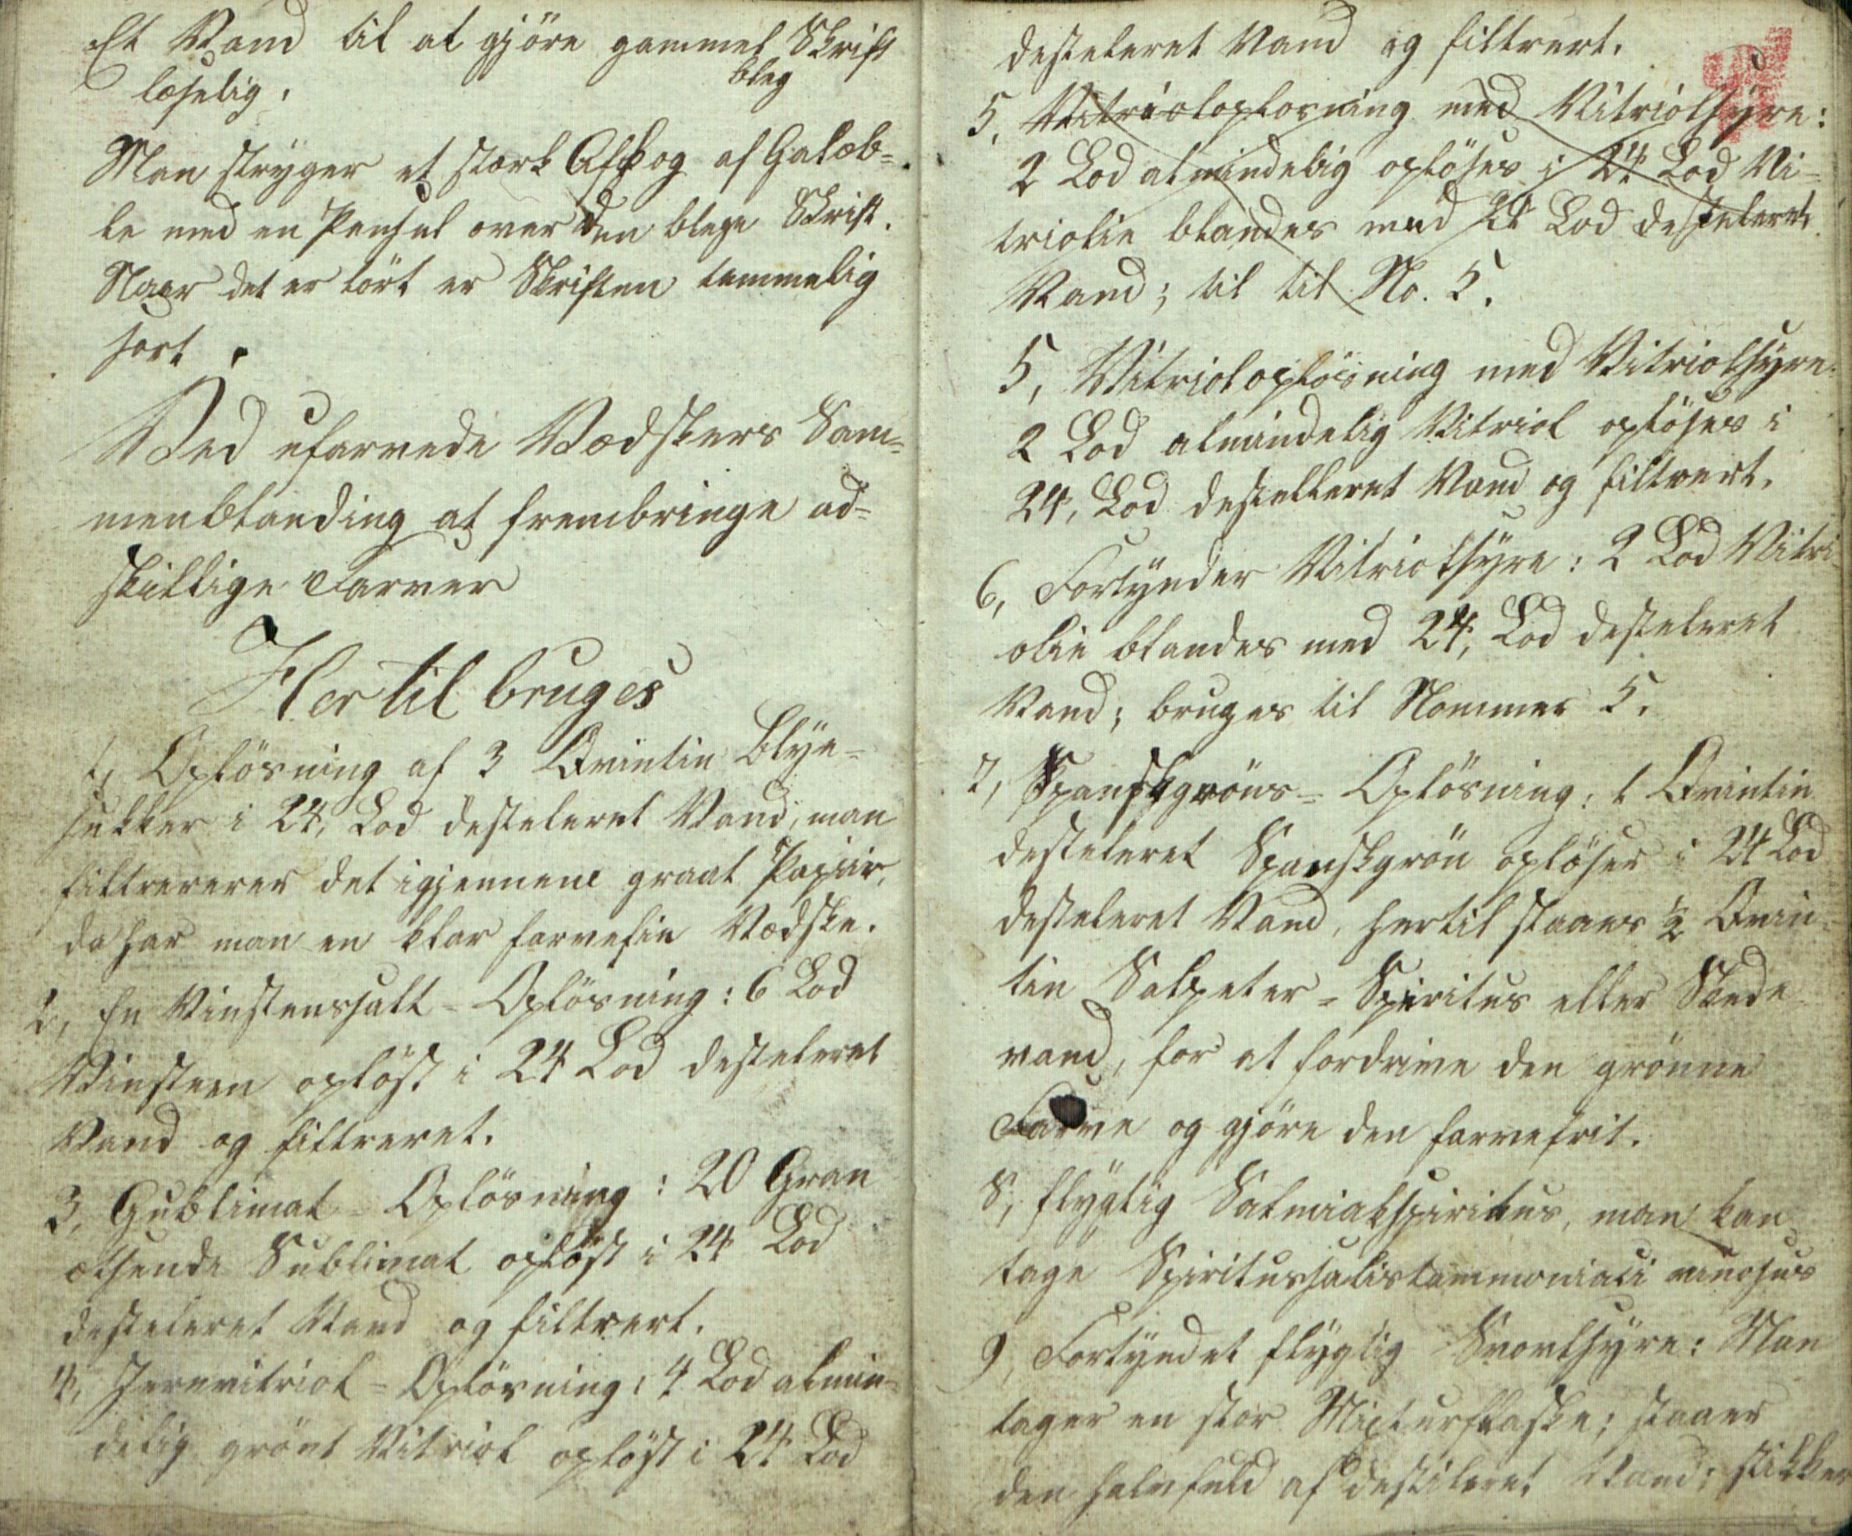 Et Vand til at gjöre gammel Skrift
bleg
læselig.
Man stryger et stærk Afkog af Galæb-
le med en Pensel over den blege Skrift.
Naar det er tört er Skriften temmelig
sort.
Ved ufarvede Vædskers Sam-
menblanding at frembringe ad-
skillige Farver
Her til bruges
1, Oplösning af 3 Qvintin Blye-
sukker i 24, Lod desteleret Vand, man
filtrererer det igjennem graat Papiir,
da har man en klar farvefie Vædske.
2, En Vinstenssalt-Oplösning: 6 Lod
Vinsteen oplöst i 24 Lod desteleret
Vand og filtreret.
3, Sublimat-Oplösning: 20 Gran
ætsende Sublimat oplöst i 24 Lod
desteleret Vand og filtrert.
4, Jernvitriol-Oplösning: 4 Lod almin-
delig grönt Vitriol oplöst i 24 Lod
desteleret Vand og filtrert.
5, Vitrioloplosning med Vitriolsyre:
2 Lod almindelig oplöses i 24 Lod Vi-
triolie blandes med 24 Lod desteleret
Vand; til til No. 5.
5, Vitrioloplösning med Vitriolsyre.
2 Lod almindelig Vitriol oplöses i
24, Lod destelleret Vand og filtrert.
6, Fortynder Vitriolsyre: 2 Lod Vitri-
olie blandes med 24, Lod desteleret
Vand; bruges til Nommer 5.
7, Spanskgröns-Oplösning: 1 Qvintin
desteleret Spanskgrön oplöser i 24 Lod
desteleret Vand, hertil slaaes ½ Qvin-
tin Salpeter-Spiritus eller Skede
vand, for at fordrive den grönne
Farve og gjöre den farvefrit.
8, flygtig Salmiakspiritus, man kan
tage Spiritussalis ammoniaci vinosus
9, Fortyndet flygtig Svovlsyre: Man
tager en stor Mixturflaske; slaaer
den halvfuld af destileret Vand; stikker